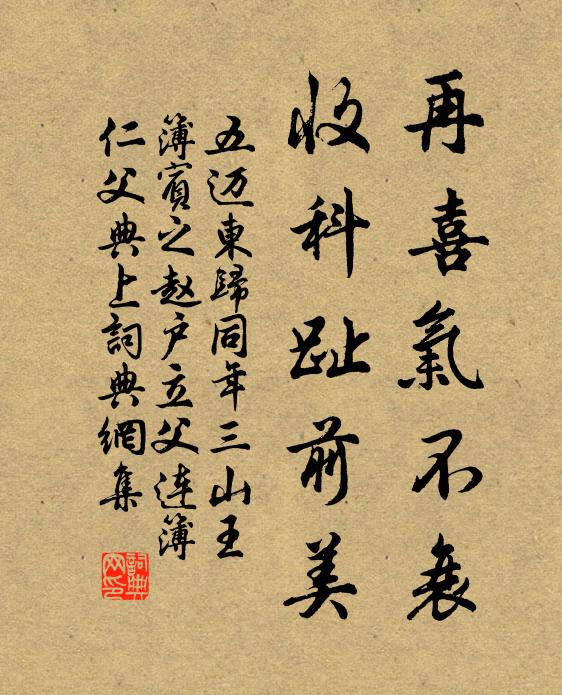 再喜氣不衰
收科趾前美
五迈東歸同年三山王
簿賓之赵户立父连簿
仁父典上詞典網集
詞典
网印